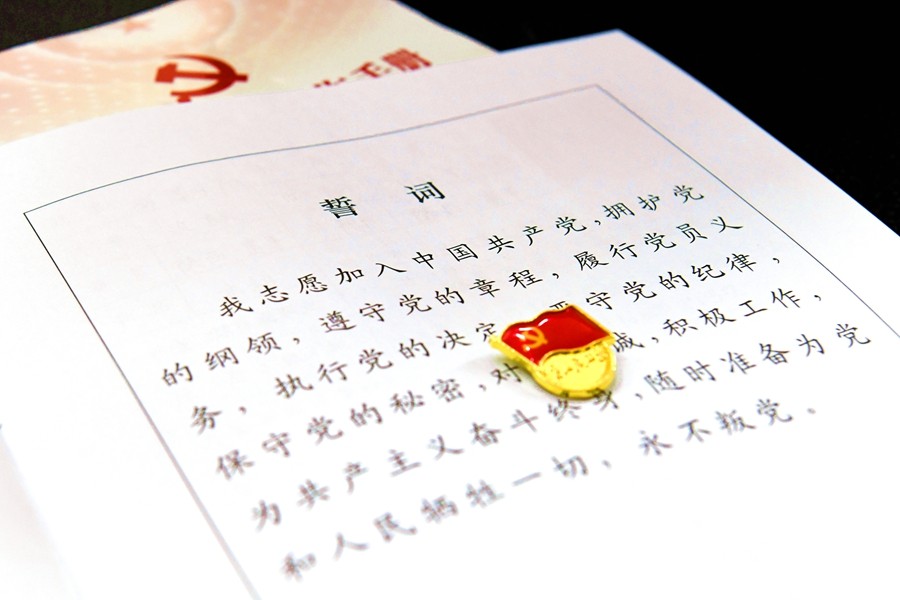 手册
誓词
我志愿加入中国共产党,拥护党
的纲领,遵守党的章程,履行党员义
务,执行党的决定 严守党的纪律,
保守党的秘密,对 诚,积极工作,
为共产主义奋斗终身,随时准备为党
和人民牺牲一切,永不叛党。